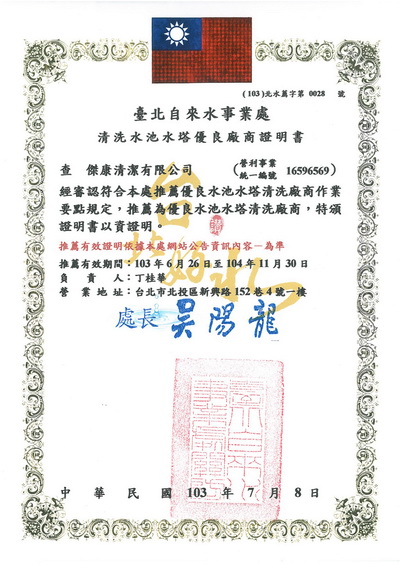 (103)北水蓄字第 0028 號
臺北自來水事業處
清洗水池水塔優良廠商證明書
查 傑康清潔有限公司 (營利事業統一編號 16596569)
經審認符合本處推薦優良水池水塔清洗廠商作業
要點規定，推薦為優良水池水塔清洗廠商，特頒
證明書以資證明。
推薦有效證明依據本處網站公告資訊內容一為準
推薦有效期間：103 年 6 月 26 日至 104 年 11 月 30 日
負責人：丁桂華
營業地址：台北市北投區新興路 152 巷 4 號一樓
處長 吳陽龍
中華民國 103 年 7 月 8 日